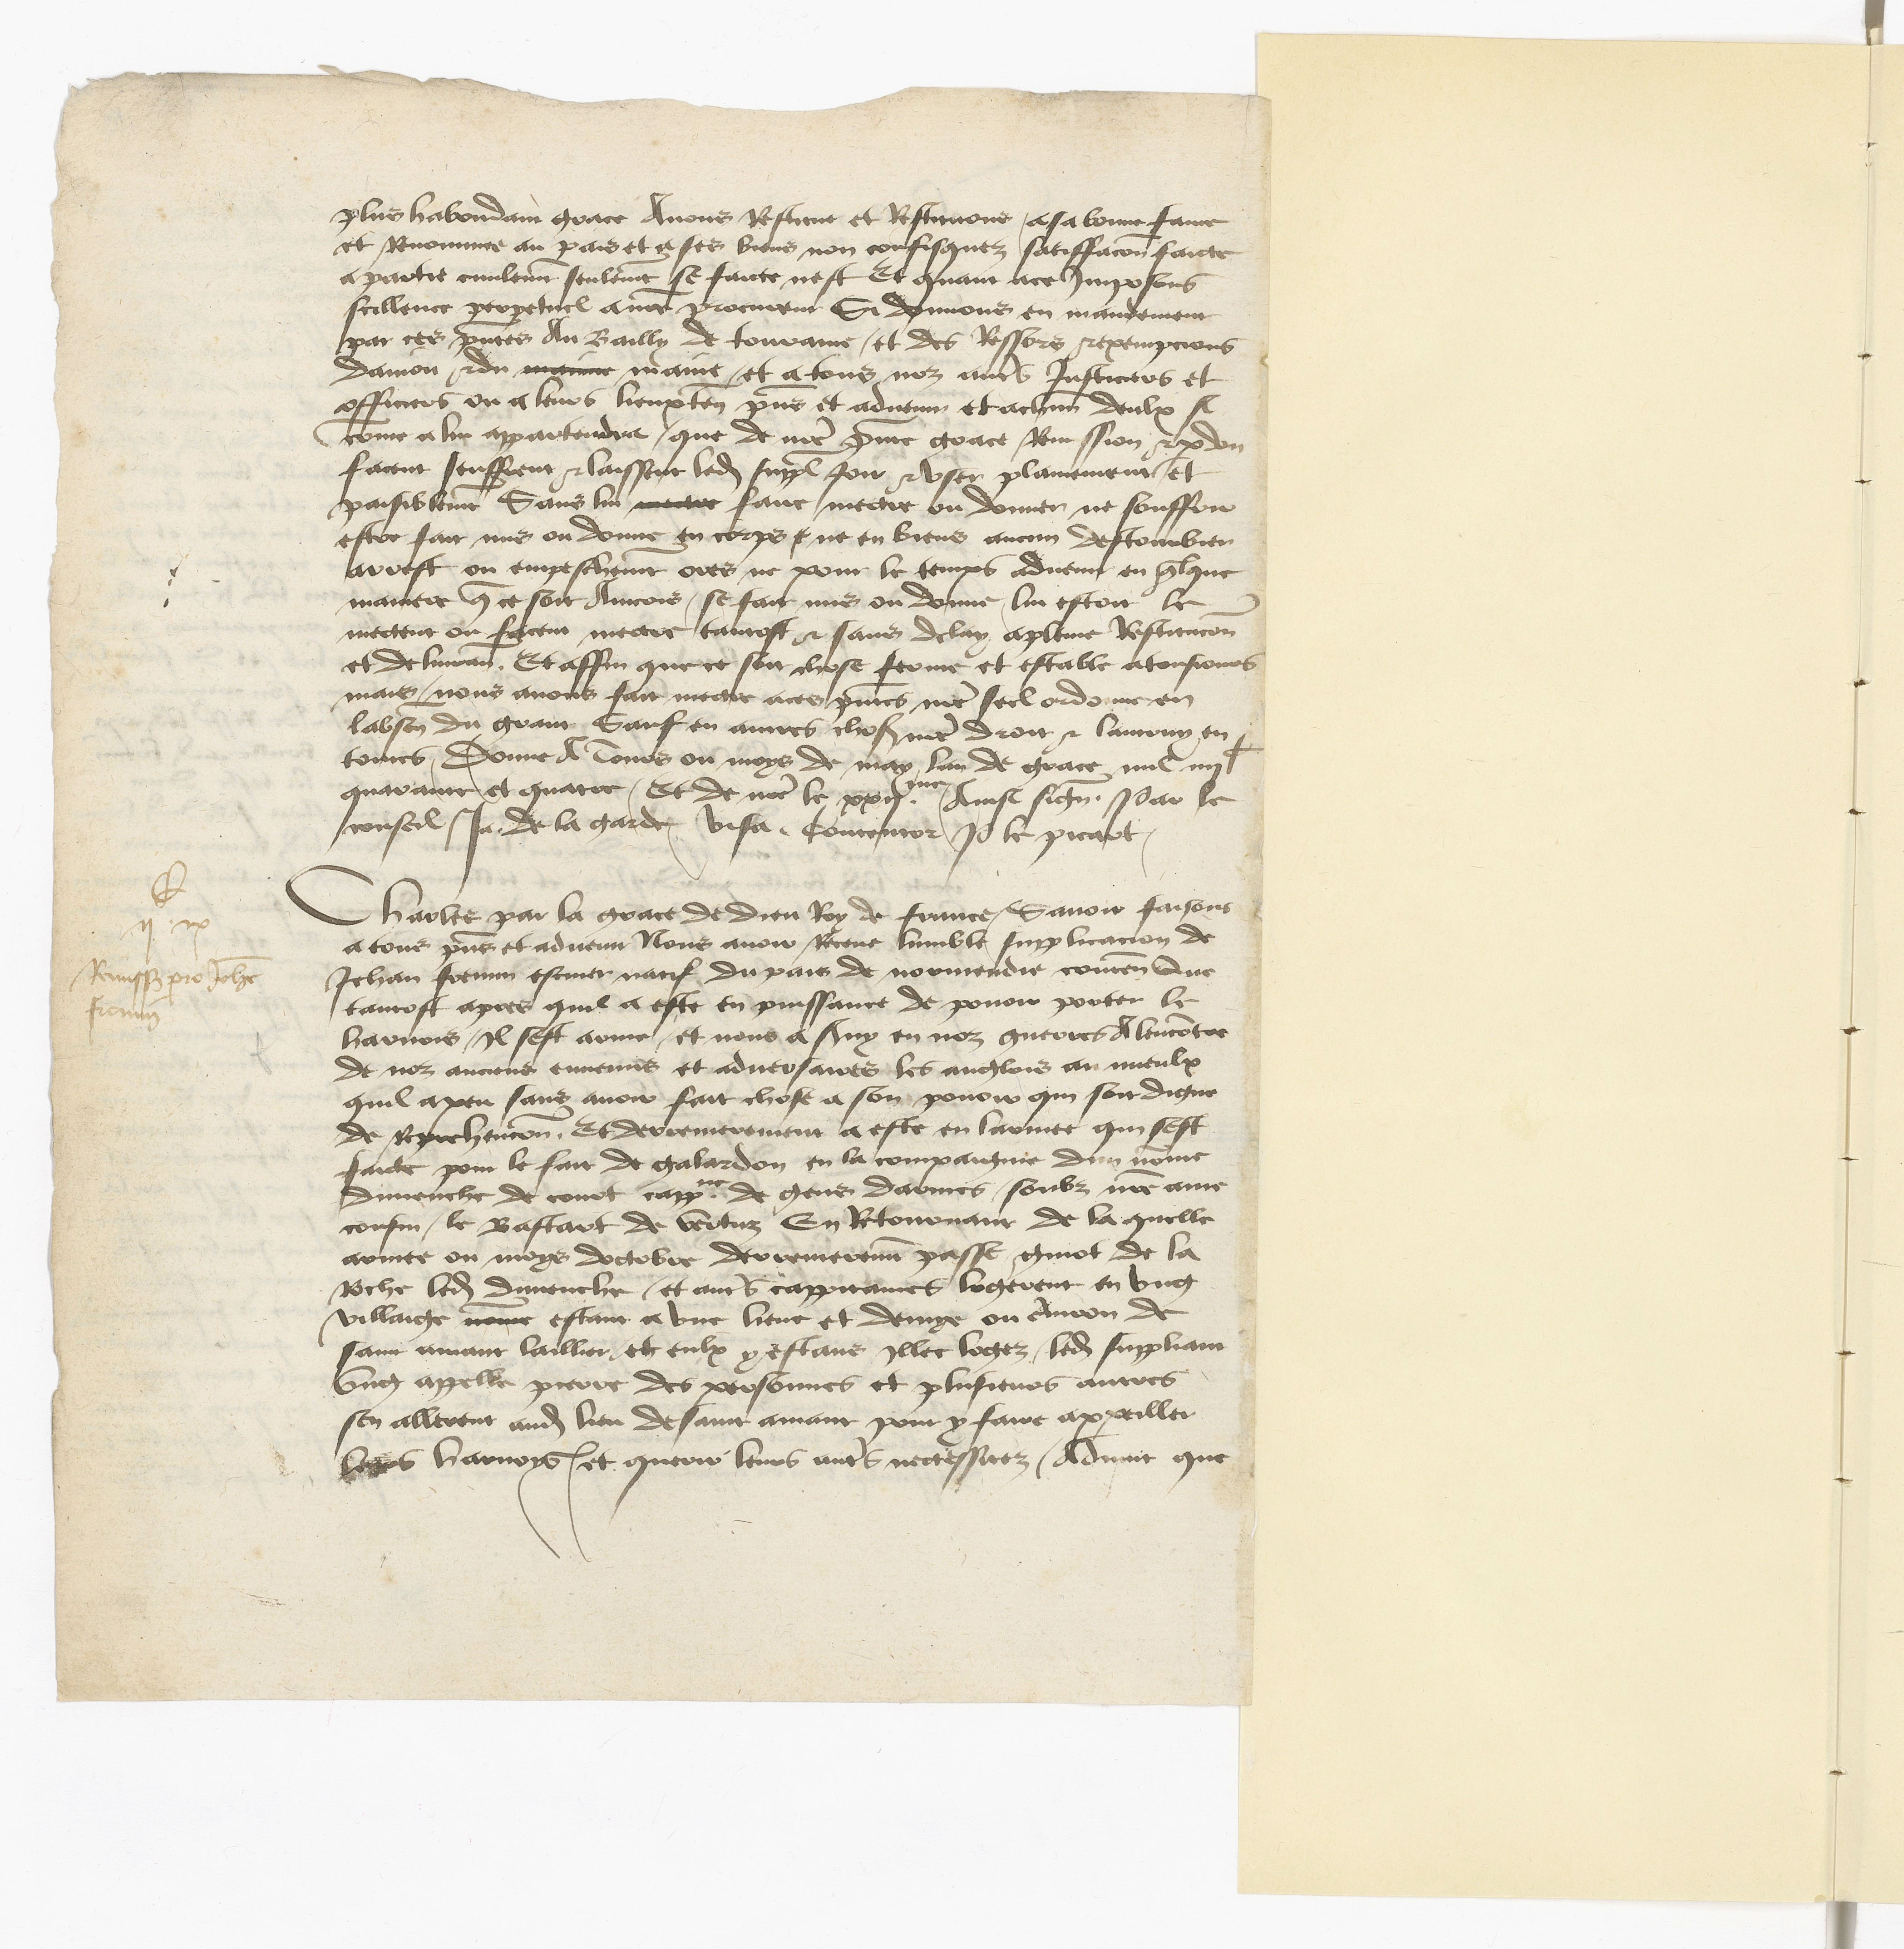 plus habondant grace Avons Restitue et Restituons a sa bonne fame
et Renommee au pais et a ses biens non confisquez satisffacon faicte
a partie civilemt seulemt se faicte nest Et quant a ce Imposons
scillence perpetuel a nre procureur Si donnons en mandement
par ces pntes Au Bailly de touraine et des Ressors et exempcions
danjou et du maine et a tous noz autrs Justiciers et
officiers ou a leurs lieuxten pns et advenir et a chun deulx si
come a lui appartendra que de nre pnte grace Remission et pdon
facent seuffrent et laissent led suppl joir et user plainement et
paisiblemt Sans lui faire mectre ou donner ne souffrir
estre fait mis ou donne en corps ne en biens aucun destourbier
arrest ou empeschemt ores ne pour le temps advenir en qlque
maniere q ce soit Aincois se fait mis ou donne lui estoit le
mectent ou facent mectre tantost et sans delay a pleine Restitucon
et delivran. Et affin que ce soit chose ferme et estable a tousjours
mais nous avons fait mectre a ces pntes nre seel ordonne en
labsen du grant Sauf en autres choses nre droit et lautruy en
toutes Donne A Tours ou moys de may lan de grace mil iiijc
quarante et quatre Et de nre le xxije. Ainsi signe. Par le
conseil Ja. de la garde visa. Contentor P le picart
Charles par la grace de dieu Roy de france Savoir faisons
a tous pns et advenir Nous avoir Receue lumble supplicacion de
Jehan fremin escuier natif du pais de normendie conten Que
tantost apres quil a este en puissance de povoir porter le
harnois Il sest arme et nous a svy en noz guerres A lencontre
de noz anciens ennemis et adversaires les anglois au mieulx
quil a peu sans avoir fait chose a son povoir qui soit digne
de Reprehencon. Et derrenierement a este en larmee qui sest
faicte pour le fait de galardon en la compaignie dun nomme
dimenche de court cappne de gens darmes soubz nre ame
cousin le Bastart de vertuz En Retournant de la quelle
armee ou moys doctobre derrenieremt passe guiot de la
Roche led dimenche et autrs cappitaines logerent en ung
villaige estant a une lieue et demye ou environ de
saint amant laillier et eulx y estans illec logez led suppliant
Ung appelle pierre des personnes et plusieurs autres
sen allerent aud lieu de saint amant pour y faire appeiller
leurs harnoys et querir leurs autrs necessitez Advint que
ij ix
Remissio pro Johe
fremin